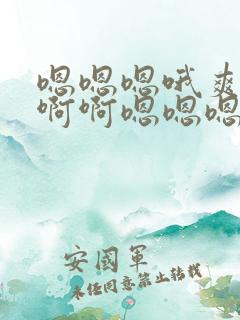 嗯嗯嗯哦爽
啊啊嗯嗯嗯
安国军
未经同意禁止转载